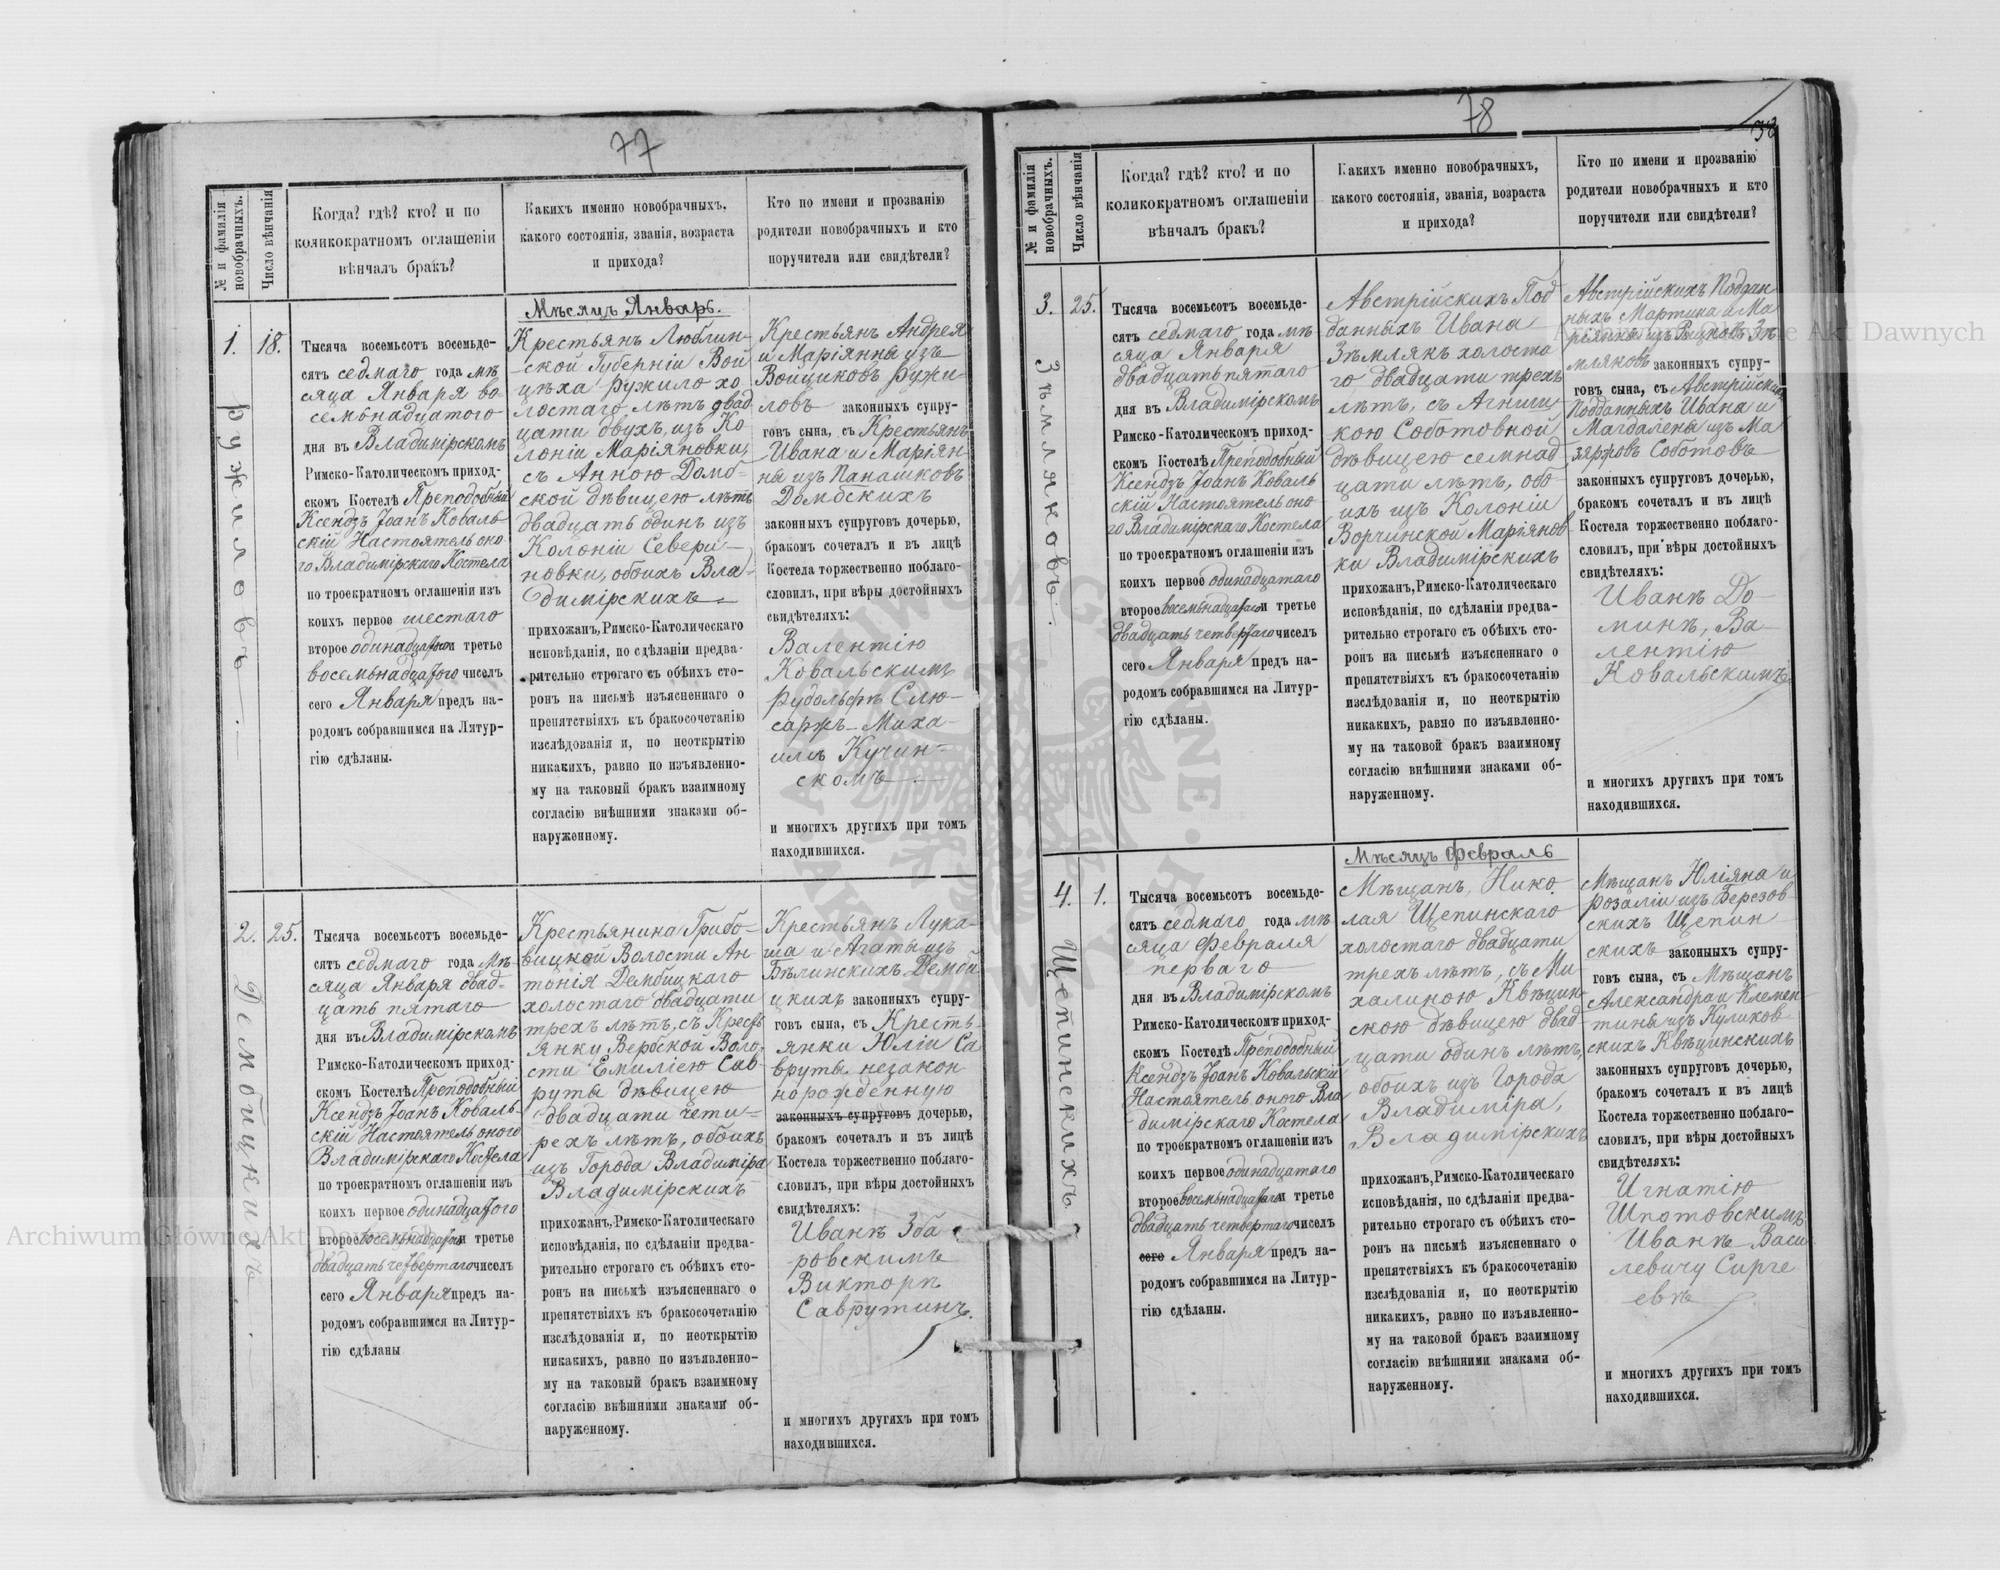 77
№ и фамилія новобрачныхъ.
Число вѣнчанія
Когда? гдѣ? кто? и по
коликократномъ оглашеніи
вѣнчалъ бракъ?
Какихъ именно новобрачныхъ,
какого состоянія, званія, возраста
и прихода?
Кто по имени и прозванію
родители новобрачныхъ и кто
поручители или свидѣтели?
Мѣсяцъ Январь.
1.
Ружиловъ.
18.
Тысяча восемьсотъ восемьде-
сятъ седмаго года мѣ
сяца Января во
семьнадцатого
дня въ Владимірскомъ
Римско-Католическомъ приход-
скомъ Костелѣ Преподобный
Ксендзъ Іоанъ Коваль-
скій Настоятель оно
го Владимірскаго Костела
по троекратномъ оглашеніи изъ
коихъ первое шестаго
второе одинадцатого и третье
восемьнадцатого чиселъ
сего Января предъ на-
родомъ собравшимся на Литур-
гію сдѣланы.
Крестьянъ Люблин-
ской Губерніи Вой
цѣха Ружило хо
лостаго, лѣтъ двад
цати двухъ, изъ Ко
лоніи Маріяновки,
съ Анною Домб-
ской дѣвицею лѣтъ
двадцать одинъ изъ
Колоніи Севери-
новки, обоихъ Вла-
димірскихъ
прихожанъ, Римско-Католическаго
исповѣданія, по сдѣланіи предва-
рительно строгаго съ обѣихъ сто-
ронъ на письмѣ изъясненнаго о
препятствіяхъ къ бракосочетанію
изслѣдованія и, по неоткрытію
никакихъ, равно по изъявленно-
му на таковый бракъ взаимному
согласію внѣшними знаками об-
наруженному.
Крестьянъ Андрея
и Маріянны изъ
Войциковъ Ружи-
ловъ законныхъ супру-
говъ сына, съ Крестьянъ
Ивана и Маріян-
ны изъ Панашковъ
Домбскихъ
законныхъ супруговъ дочерью,
бракомъ сочеталъ и въ лицѣ
Костела торжественно поблаго-
словилъ, при вѣры достойныхъ
свидѣтеляхъ:
Валентію
Ковальскимъ
Рудольфѣ Слю-
саржъ Миха-
илѣ Кучин-
скомъ
и многихъ другихъ при томъ
находившихся.
2.
Дембицкихъ.
25.
Тысяча восемьсотъ восемьде-
сятъ седмаго года мѣ-
сяца Января двад-
цать пятаго
дня въ Владимірскомъ
Римско-Католическомъ приход-
скомъ Костелѣ Преподобный
Ксендзъ Іоанъ Коваль-
скій Настоятель оного
Владимірскаго Костела
по троекратномъ оглашеніи изъ
коихъ первое одинадцатого
второе восемьнадцатого и третье
двадцать четвертаго чиселъ
сего Января предъ на-
родомъ собравшимся на Литур-
гію сдѣланы
Крестьянина Грибо-
вицкой Волости Ан-
тонія Дембицкаго
холостаго двадцати
трехъ лѣтъ, съ Кресть
янку Вербской Воло-
сти Емиліею Сав
руты дѣвицею
двадцати чети-
рехъ лѣтъ, обоихъ
изъ Города Владиміра
Владимірскихъ
прихожанъ, Римско-Католическаго
исповѣданія, по сдѣланіи предва-
рительно строгаго съ обѣихъ сто-
ронъ на письмѣ изъясненнаго о
препятствіяхъ къ бракосочетанію
изслѣдованія и, по неоткрытію
никакихъ, равно по изъявленно-
му на таковый бракъ взаимному
согласію внѣшними знаками об-
наруженному.
Крестьянъ Лука-
ша и Агаты изъ
Бѣлинскихъ Демби
цкихъ законныхъ супру-
говъ сына, съ Кресть-
янки Юліи Са
вруты незакон
норожденную
законныхъ супруговъ дочерью,
бракомъ сочеталъ и въ лицѣ
Костела торжественно поблаго-
словилъ, при вѣры достойныхъ
свидѣтеляхъ:
Иванѣ Зба
ровскимъ
Викторѣ
Саврутинъ.
и многихъ другихъ при томъ
находившихся.
78
38
№ и фамилія новобрачныхъ.
Число вѣнчанія
Когда? гдѣ? кто? и по
коликократномъ оглашеніи
вѣнчалъ бракъ?
Какихъ именно новобрачныхъ,
какого состоянія, званія, возраста
и прихода?
Кто по имени и прозванію
родители новобрачныхъ и кто
поручители или свидѣтели?
3.
Зѣмляковъ.
25.
Тысяча восемьсотъ восемьде-
сятъ седмаго года мѣ
сяца Января
двадцать пятаго
дня въ Владимірскомъ
Римско-Католическомъ приход-
скомъ Костелѣ Преподобный
Ксендзъ Іоанъ Коваль
скій Настоятель оно
го Владимірскаго Костела
по троекратномъ оглашеніи изъ
коихъ первое одинадцатаго
второе восемьнадцатаго и третье
двадцать четвертаго чиселъ
сего Января предъ на-
родомъ собравшимся на Литур-
гію сдѣланы.
Австрійскихъ Под
данныхъ Ивана
Зѣмлякъ холоста
го двадцати трехъ
лѣтъ, съ Агниш
кою Соботовной
дѣвицею семнад
цати лѣтъ, обо-
ихъ изъ Колоніи
Ворчинской Маріянов
ки Владимірскихъ
прихожанъ, Римско-Католическаго
исповѣданія, по сдѣланіи предва-
рительно строгаго съ обѣихъ сто-
ронъ на письмѣ изъясненнаго о
препятствіяхъ къ бракосочетанію
изслѣдованія и, по неоткрытію
никакихъ, равно по изъявленно-
му на таковой бракъ взаимному
согласію внѣшними знаками об-
наруженному.
Австрійскихъ Поддан
ныхъ Мартина и Ма
ріянны изъ Зѣ
мляковъ законныхъ супру-
говъ сына, съ Австрійскихъ
Подданныхъ Ивана и
Магдалены изъ Ма
зяржовъ Соботовъ
законныхъ супруговъ дочерью,
бракомъ сочеталъ и въ лицѣ
Костела торжественно поблаго-
словилъ, при вѣры достойныхъ
свидѣтеляхъ:
Иванѣ До-
минъ, Ва-
лентію
Ковальскимъ
и многихъ другихъ при томъ
находившихся.
Мѣсяцъ Февраль
4.
Щепинскихъ
1.
Тысяча восемьсотъ восемьде-
сятъ седмаго года мѣ
сяца Февраля
перваго
дня въ Владимірскомъ
Римско-Католическомъ приход-
скомъ Костелѣ Преподобный
Ксендзъ Іоанъ Ковальскій
Настоятель оного Вла
димірскаго Костела
по троекратномъ оглашеніи изъ
коихъ первое одинадцатаго
второе восемьнадцатаго и третье
двадцать четвертаго чиселъ
сего Января предъ на-
родомъ собравшимся на Литур-
гію сдѣланы.
Мѣщанъ, Нико
лая Щепинскаго
холостаго двадцати
трехъ лѣтъ, съ Ми
халиною Квѣцин
скою дѣвицею двад
цати одинъ лѣтъ,
обоихъ изъ Города
Владиміра,
Владимірскихъ
прихожанъ, Римско-Католическаго
исповѣданія, по сдѣланіи предва-
рительно строгаго съ обѣихъ сто-
ронъ на письмѣ изъясненнаго о
препятствіяхъ къ бракосочетанію
изслѣдованія и, по неоткрытію
никакихъ, равно по изъявленно-
му на таковой бракъ взаимному
согласію внѣшними знаками об-
наруженному.
Мѣщанъ Юліяна и
Розаліи изъ Березов
скихъ Щепин
скихъ законныхъ супру-
говъ сына, съ Мѣщанъ
Александра и Клемен
тины изъ Куликов
скихъ Квѣцинскихъ
законныхъ супруговъ дочерью,
бракомъ сочеталъ и въ лицѣ
Костела торжественно поблаго-
словилъ, при вѣры достойныхъ
свидѣтеляхъ:
Игнатію
Шпотовскимъ
Иванѣ Васи
левичу Сирге
евѣ
и многихъ другихъ при томъ
находившихся.
Archiwum Główne Akt Dawnych
Archiwum Główne Akt Dawnych
ARCHIWUM GŁÓWNE AKT DAWNYCH